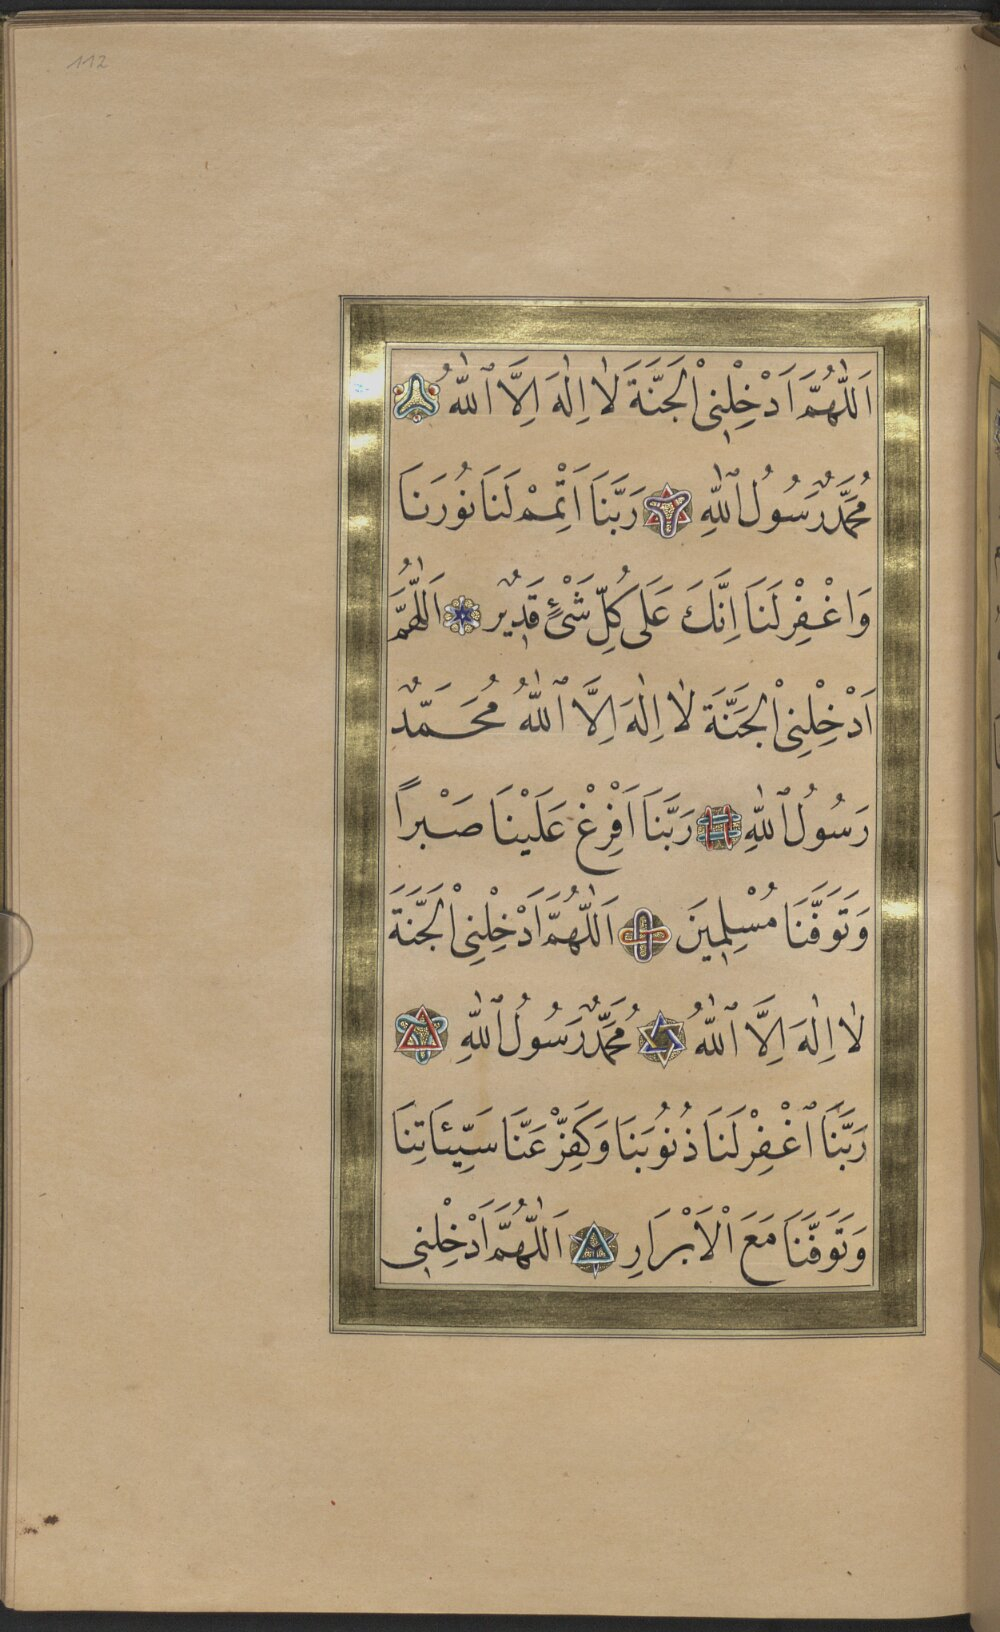 112
اَللّٰهُمَّ اَدْخِلْنِىْ الْجَنَّةَ لَا اِلٰهَ اِلَّا ٱللّٰهُ
مُحَمَّدٌ رَسُولُ ٱللّٰهِ رَبَّنَا اَتْمِمْ لَنَا نُورَنَا
وَاغْفِرْلَنَا اِنَّكَ عَلَى كُلِّ شَىْءٍ قَدِيرٌ اَللّٰهُمَّ
اَدْخِلْنِىْ الْجَنَّةَ لَا اِلٰهَ اِلَّا ٱللّٰهُ مُحَمَّدٌ
رَسُولُ ٱللّٰهِ رَبَّنَا اَفْرِغْ عَلَيْنَا صَبْرًا
وَتَوَفَّنَا مُسْلِمِينَ اَللّٰهُمَّ اَدْخِلْنِىْ الْجَنَّةَ
لَا اِلٰهَ اِلَّا ٱللّٰهُ مُحَمَّدٌ رَسُولُ ٱللّٰهِ
رَبَّنَا ٱغْفِرْلَنَا ذُنُوبَنَا وَكَفِّرْ عَنَّا سَيِّئَاتِنَا
وَتَوَفَّنَا مَعَ الْاَبْرَارِ اَللّٰهُمَّ اَدْخِلْنِى